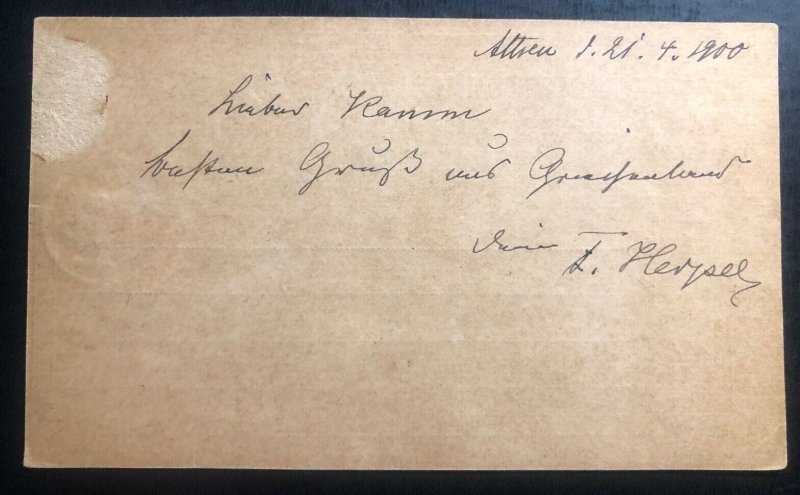 Athen d. 21. 4. 1900
Lieber Kamm
besten Gruß aus Griechenland
Dein F. Herpel